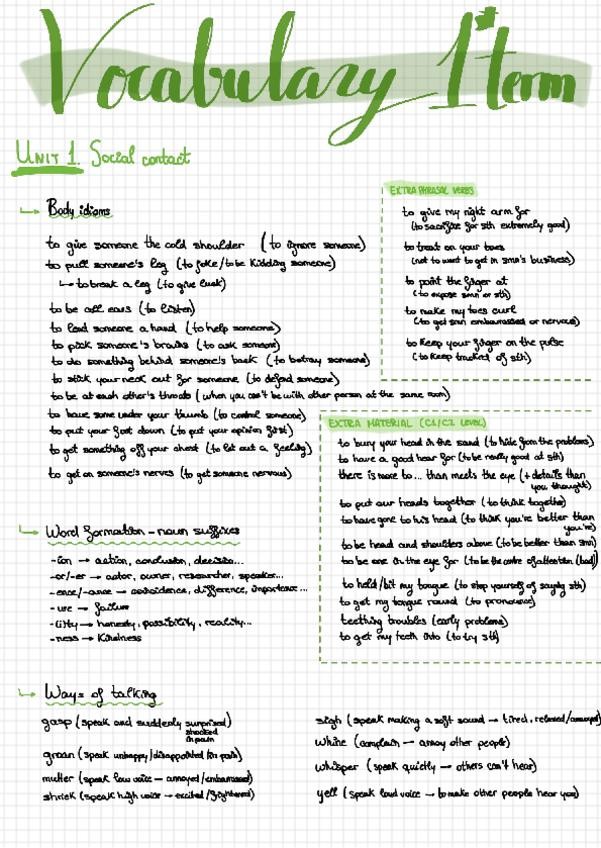 Vocabulary 1st term
UNIT 1. Social contact
Body idioms
to give someone the cold shoulder (to ignore someone)
to pull someone's leg (to joke/to be kidding someone)
to break a leg (to give luck)
to be all ears (to listen)
to lend someone a hand (to help someone)
to pick someone's brains (to ask someone)
to do something behind someone's back (to betray someone)
to stick your neck out for someone (to defend someone)
to be at each other's throats (when you can't be with other person at the same room)
to have some under your thumb (to control someone)
to put your foot down (to put your opinion first)
to get something off your chest (to let out a feeling)
to get on someone's nerves (to get someone nervous)
EXTRA PHRASAL VERBS
to give my right arm for
(to sacrifice for sth extremely good)
to treat on your toes
(not to want to get in smn's business)
to point the finger at
(to expose smn or sth)
to make my toes curl
(to get smn embarrassed or nervous)
to keep your finger on the pulse
(to keep tracked of sth)
EXTRA MATERIAL (C1/C2 LEVEL)
to bury your head in the sand (to hide from the problems)
to have a good hear for (to be really good at sth)
there is more to... than meets the eye (+ details than
you thought)
to put our heads together (to think together)
to have gone to his head (to think you're better than
you're)
to be head and shoulders above (to be better than smn)
to be one in the eye for (to be the centre of attention (bad))
to hold/bit my tongue (to stop yourself of saying sth)
to get my tongue round (to pronounce)
teething troubles (early problems)
to get my teeth into (to try sth)
Word formation - noun suffixes
-ion → action, conclusion, decision...
-or/-er → actor, owner, researcher, speaker...
-ence/-ance → coincidence, difference, importance...
-ure → failure
-ility → honesty, possibility, reality...
-ness → Kindness
Ways of talking
gasp (speak and suddenly surprised)
shocked
in pain
groan (speak unhappy/disappointed/in pain)
mutter (speak low voice → annoyed/embarrassed)
shriek (speak high voice → excited/frightened)
sigh (speak making a soft sound → tired, relaxed/annoyed)
whine (complain → annoy other people)
whisper (speak quietly → others can't hear)
yell (speak loud voice → to make other people hear you)